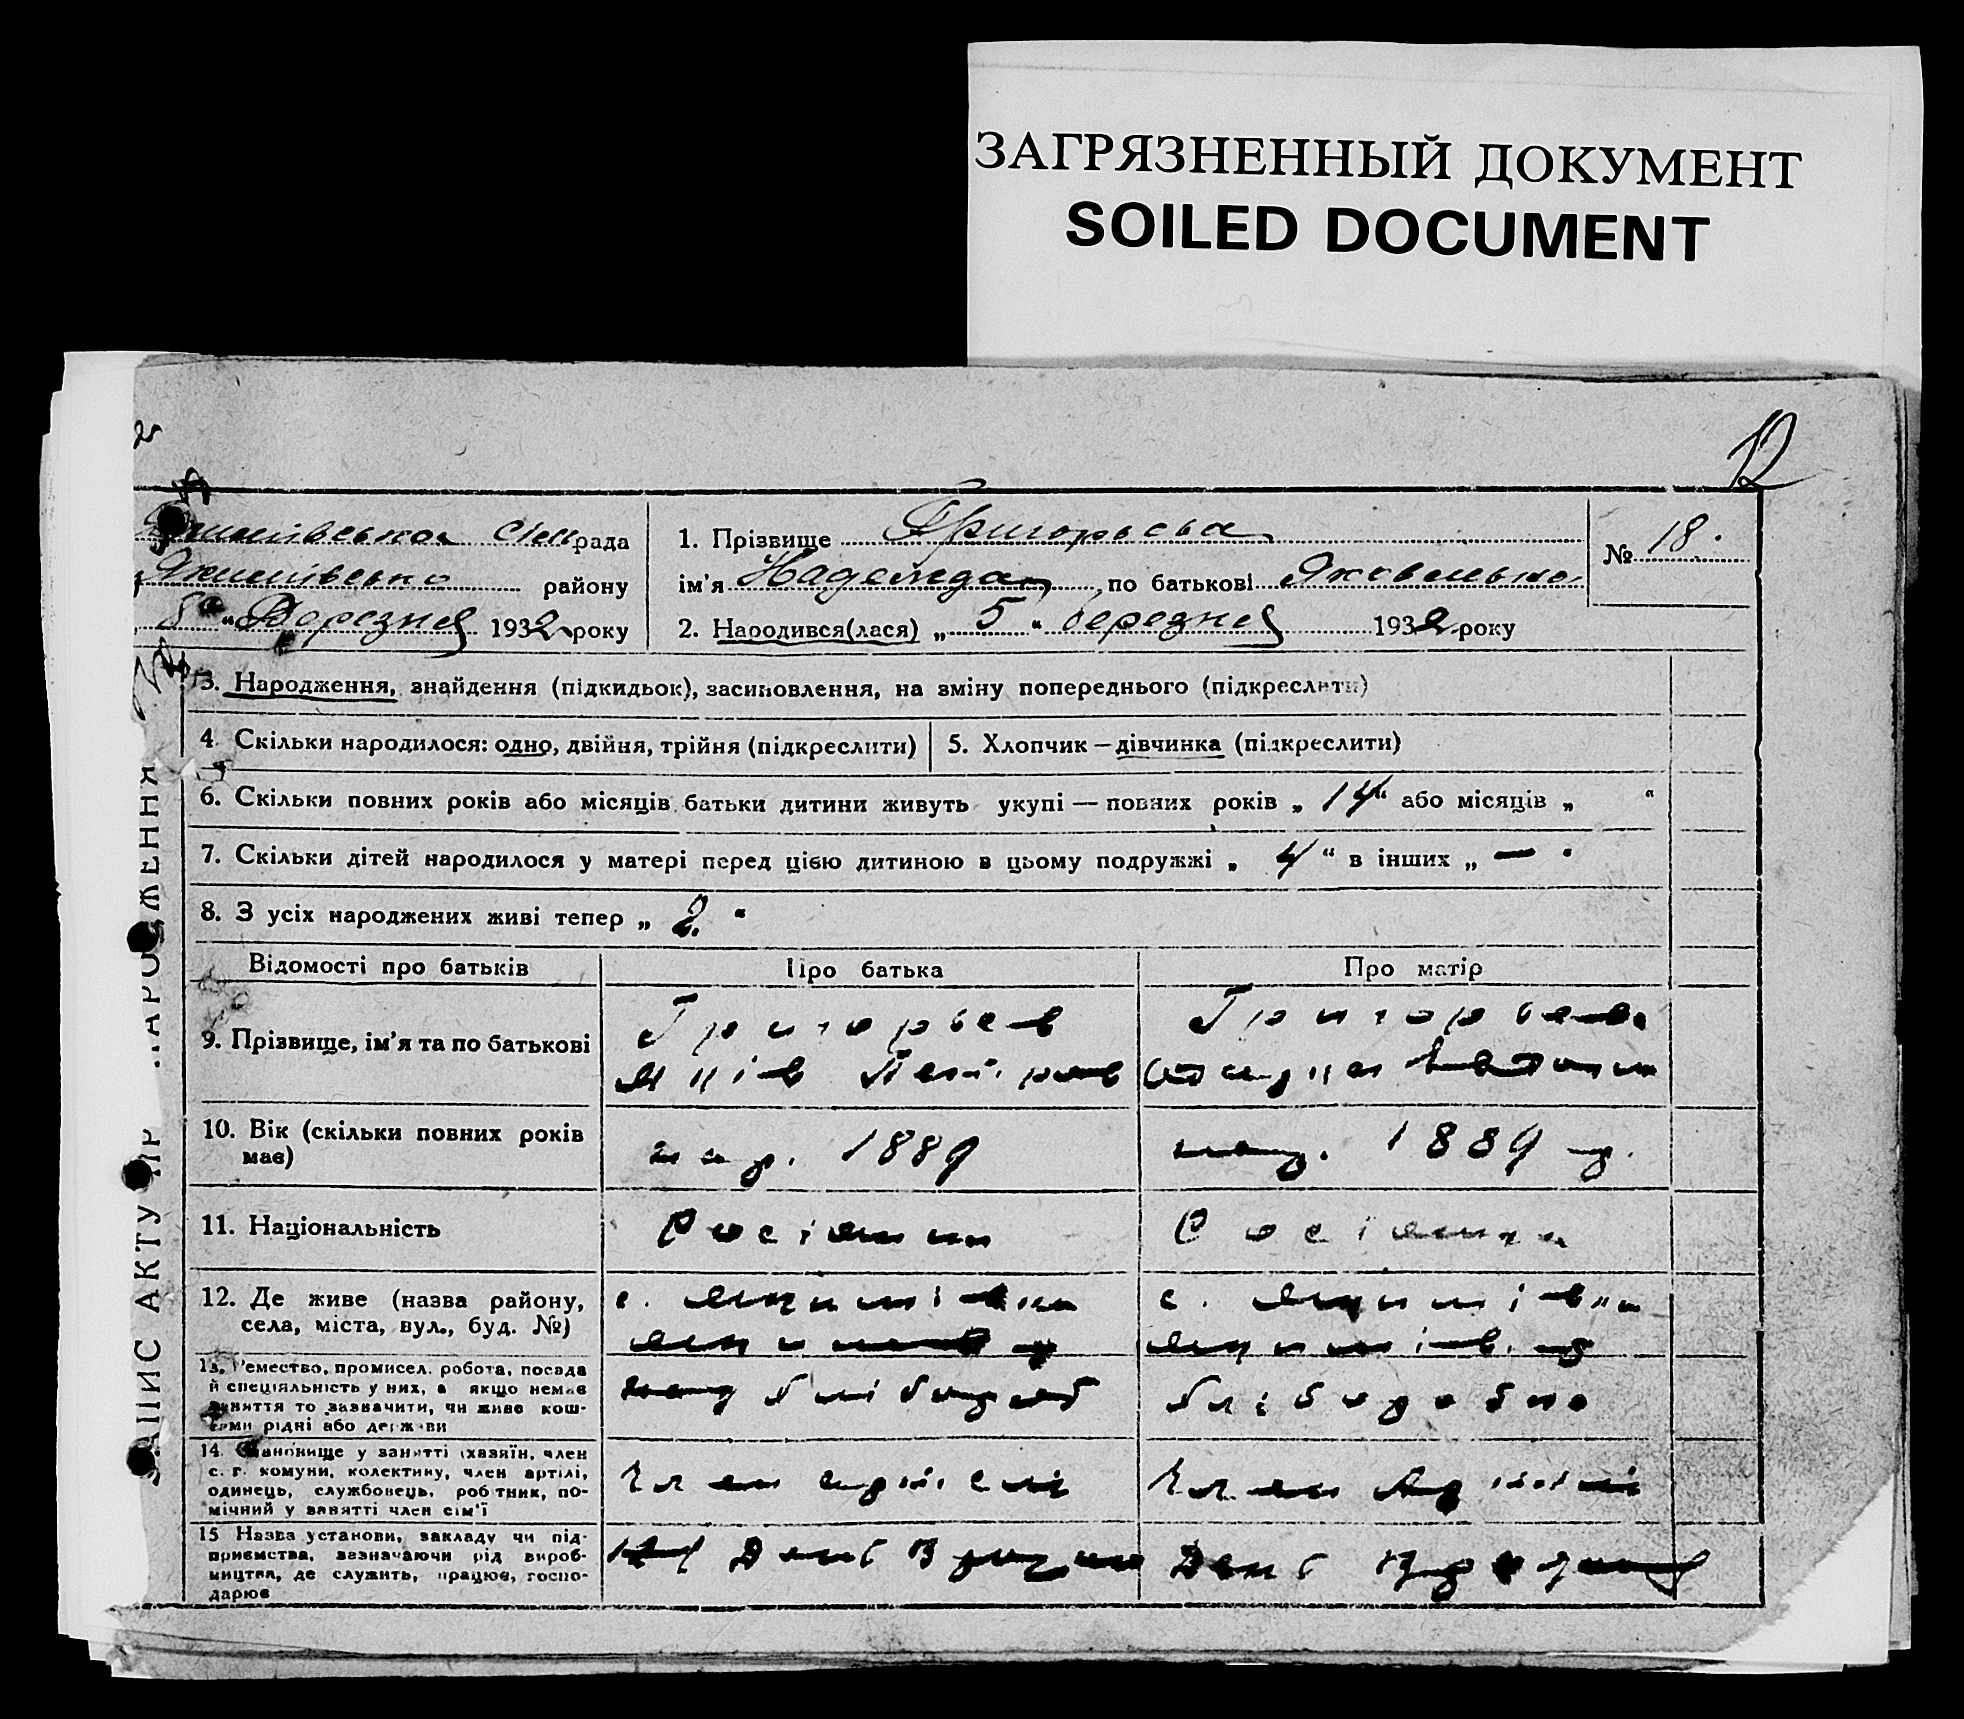 ЗАГРЯЗНЕННЫЙ ДОКУМЕНТ
SOILED DOCUMENT
12
рада
району
8 " Березня 1932 року
1. Прізвище Григорьєва
ім'я Надежда, по батькові Яковлевна
№ 18.
2. Народився(лася) „ 5 " березня 1932 року
3. Народження, знайдення (підкидьок), засиновлення, на зміну попереднього (підкреслити)
4 Скільки народилося: одно, двійня, трійня (підкреслити)
5. Хлопчик – дівчинка (підкреслити)
6. Скільки повних років або місяців батьки дитини живуть укупі — повних років „ 14 " або місяців „ "
7. Скільки дітей народилося у матері перед цією дитиною в цьому подружжі „ 4 " в інших „ — "
8. З усіх народжених живі тепер „ 2. "
ЗАПИС АКТУ ПР НАРОДЖЕННЯ
Відомості про батьків
Про батька
Про матір
9. Прізвище, ім'я та по батькові
Григорьев
Григорьева
10. Вік (скільки повних років має)
нар. 1889
нар. 1889 р.
11. Національність
Росіянин
Росіянка
12. Де живе (назва району, села, міста, вул., буд. №)
с.
с.
13. Ремество, промисел, робота, посада й спеціяльність у них, а якщо немає заняття то зазначити, чи живе коштами рідні або держави
хлібороб
хлібороб
14. Становище у занятті (хазяїн, член с. г. комуни, колективу, член артілі, одинець, службовець, робітник, помічний у занятті член сім'ї
Член артілі
Член Артілі
15 Назва установи, закладу чи підприємства, зазначаючи рід виробництва, де служить, працює, господарює
День
День